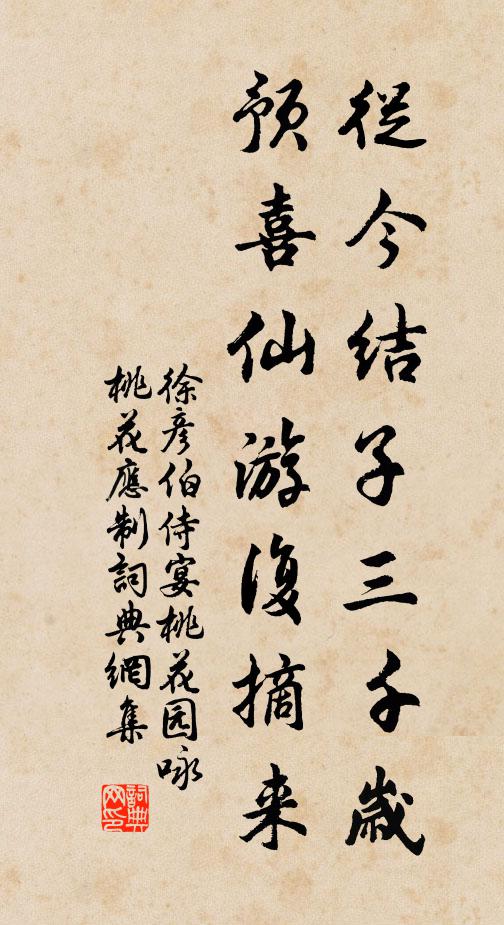 從今結子三千歲
預喜仙游復摘来
徐彦伯侍宴桃花园咏
桃花應制詞典網集
詞典
网印